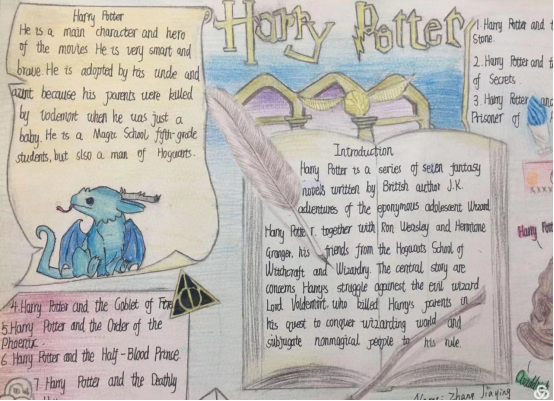 Harry Potter
Harry Potter
He is a main character and hero
of the movies. He is very smart and
brave. He is adopted by his uncle and
aunt because his parents were killed
by Vodemont when he was just a
baby. He is a Magic School fifth-grade
students, but also a man of Hogwarts.
1. Harry Potter and
Stone.
2. Harry Potter and
of Secrets.
3. Harry Potter and
Prisoner of
Introduction
Harry Potter is a series of seven fantasy
novels written by British author J.K.
adventures of the eponymous adolescent Wizard
Harry Potter. together with Ron Weasley and Hermione
Granger, his friends from the Hogwarts School of
Witchcraft and Wizardry. The central story are
concerns Harry's struggle againest the evil wizard
Lord Voldemort. who killed Harry's parents in
his quest to conquer wizarding world and
subjugate nonmagical people to his rule.
4. Harry Potter and the Goblet of Fire
5. Harry Potter and the Order of the
Phoenix.
6. Harry Potter and the Half-Blood Prince
7. Harry Potter and the Deathly
Name: Zhang Jiaying